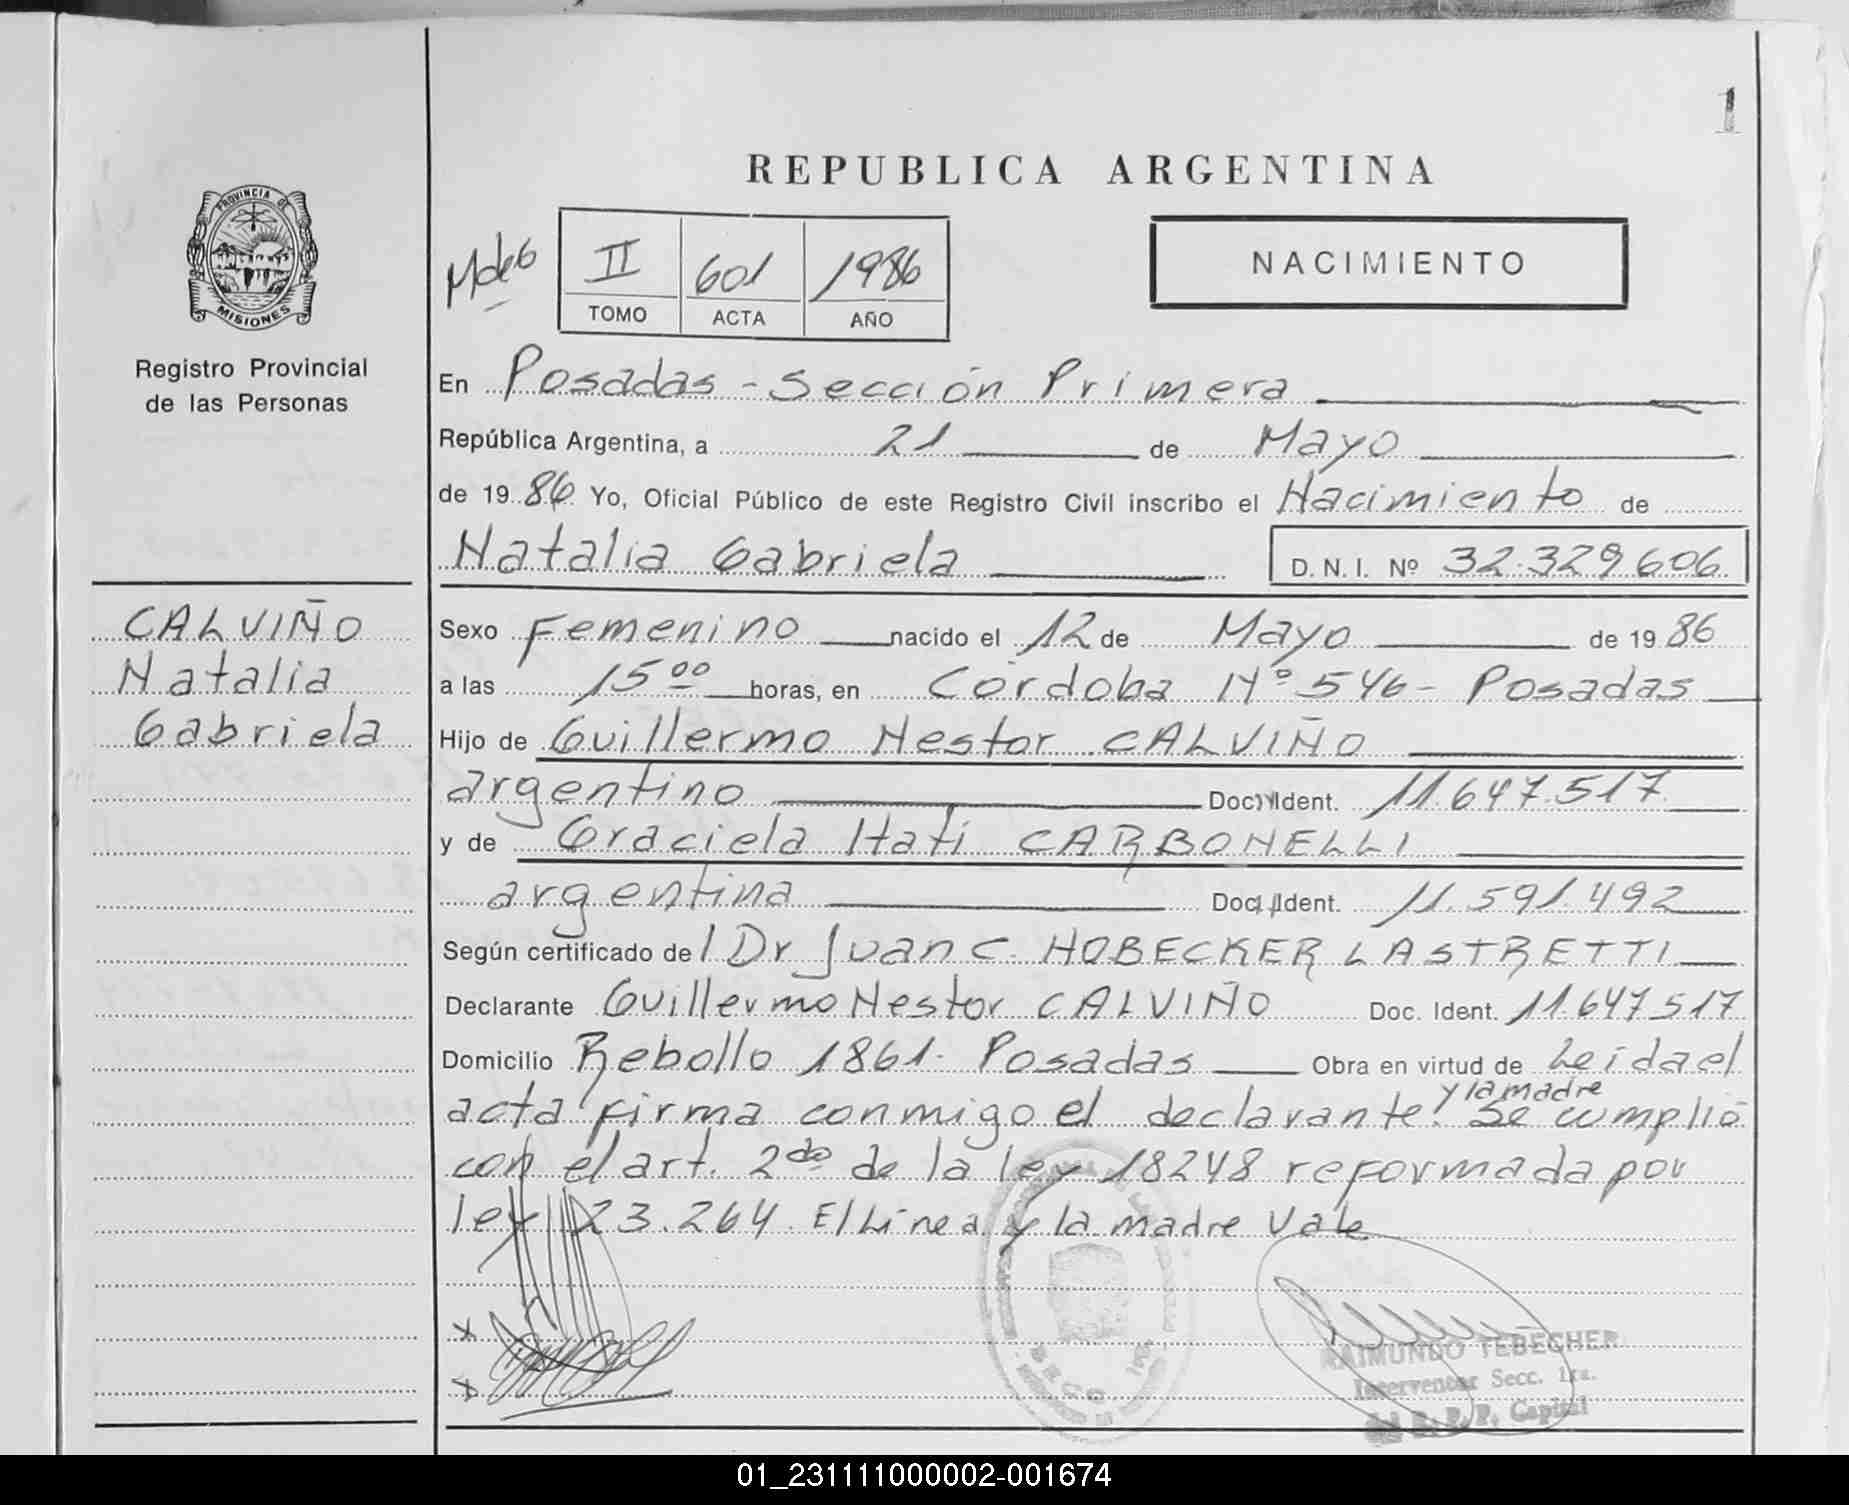 1
REPUBLICA ARGENTINA
PROVINCIA DE
MISIONES
Registro Provincial
de las Personas
II 601 1986
TOMO ACTA AÑO
NACIMIENTO
En Posadas - Sección Primera
República Argentina, a 21 de Mayo
de 19 86 Yo, Oficial Público de este Registro Civil inscribo el Nacimiento de
Natalia Gabriela D. N. I. Nº 32.329.606
CALVIÑO
Natalia
Gabriela
Sexo Femenino nacido el 12 de Mayo de 19 86
a las 15⁰⁰ horas, en Córdoba Nº 546 - Posadas
Hijo de Guillermo Nestor CALVIÑO
argentino Doc. Ident. 11.647.517
y de Graciela Itati CARBONELLI
argentina Doc. Ident. 11.591.492
Según certificado del Dr Juan C. HOBECKER LASTRETTI
Declarante Guillermo Nestor CALVIÑO Doc. Ident. 11.647517
Domicilio Rebollo 1861 - Posadas Obra en virtud de Leida el
y la madre
acta firma conmigo el declarante. Se cumplió
con el art. 2do de la ley 18248 reformada por
ley 23.264. E/Linea y la madre Vale
RAIMUNDO TEBECHER
Interventor Secc. 1ra.
del R. P. P. Capital
01_231111000002-001674